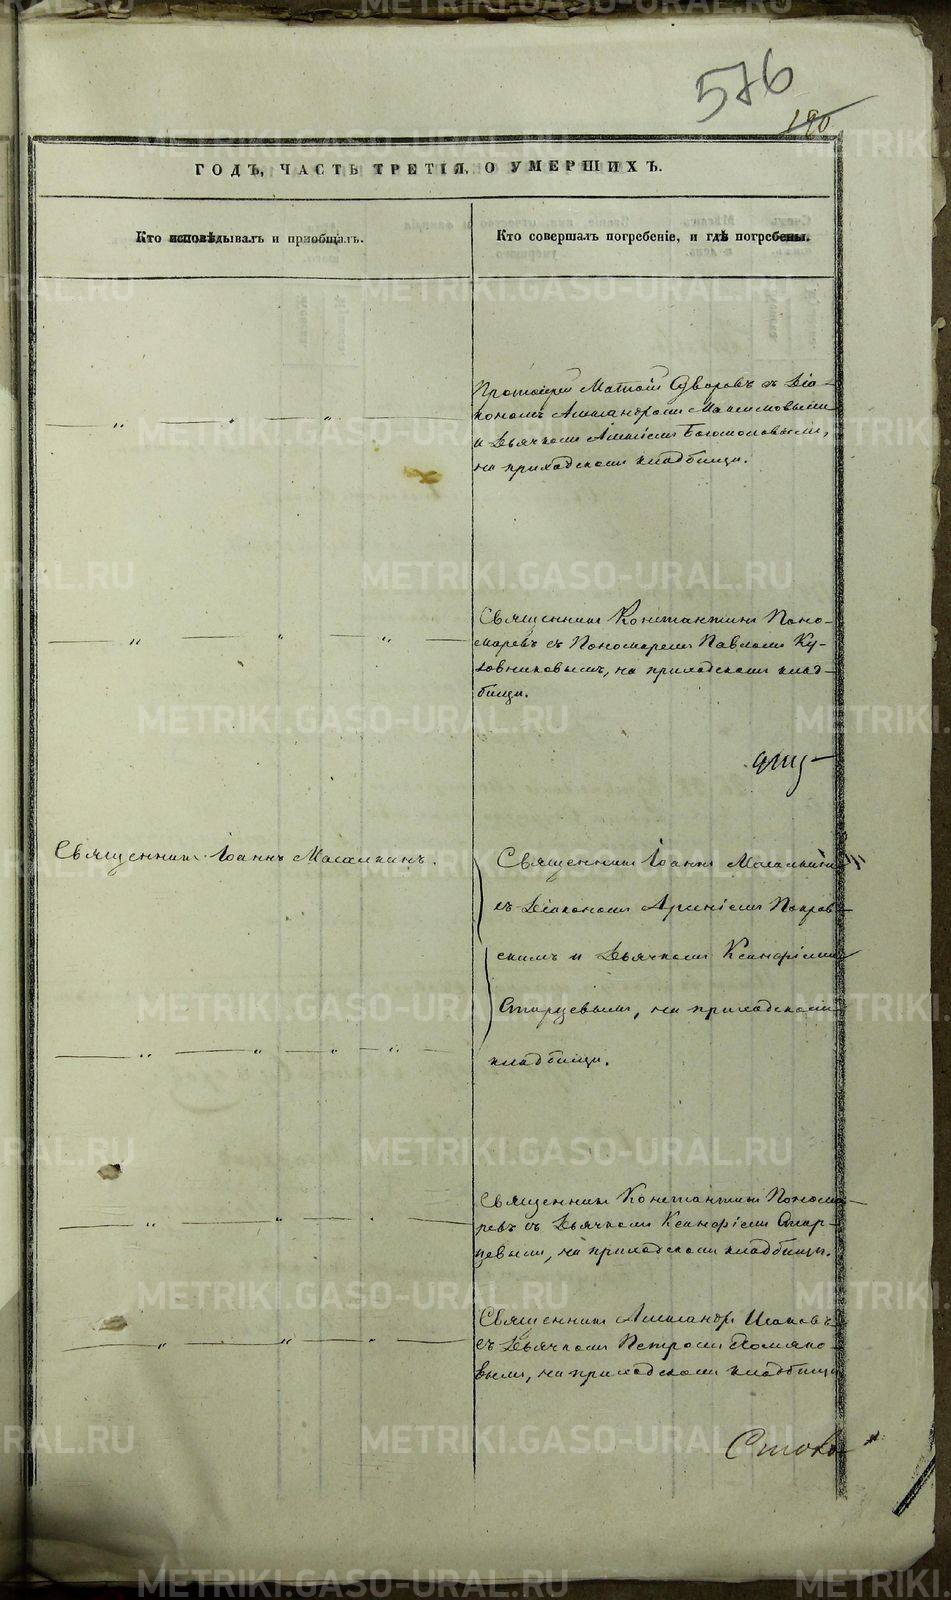 576
180
ГОДЪ, ЧАСТЬ ТРЕТІЯ, О УМЕРШИХЪ.
Кто исповѣдывалъ и приобщалъ.
Кто совершалъ погребеніе, и гдѣ погребены.
Протоіерей Матѳій Удворовъ съ Діа-
кономъ Александромъ Максимовымъ
и Дьячкомъ Алексѣемъ Богомоловымъ,
на приходскомъ кладбищѣ.
Священникъ Константинъ Поно-
маревъ съ Пономаремъ Павломъ Ку-
човниковымъ, на приходскомъ клад-
бищѣ.
Священникъ Іоаннъ Масалкинъ.
Священникъ Іоаннъ Масалкинъ
съ Діакономъ Арсеніемъ Покров-
скимъ и Дьячкомъ Ксенофонтомъ
Старцевымъ, на приходскомъ
кладбищѣ.
Священникъ Константинъ Понома-
ревъ съ Дьячкомъ Стар-
цевымъ, на приходскомъ кладбищѣ.
Священникъ Александръ
съ Дьячкомъ Петромъ Хомяко-
вымъ, на приходскомъ кладбищѣ
METRIKI.GASO-URAL.RU